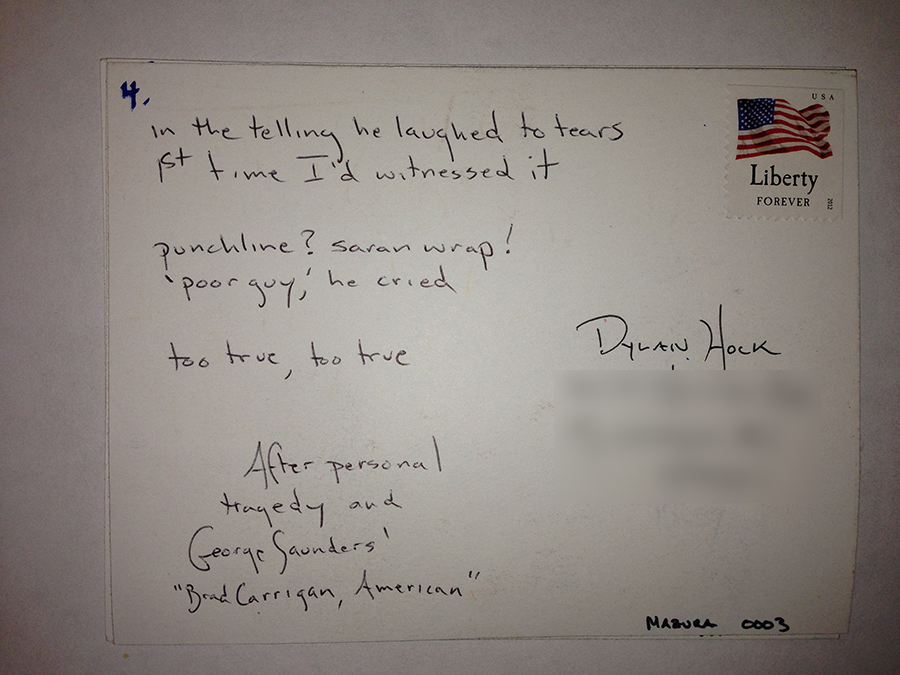 4.
in the telling he laughed to tears
1st time I'd witnessed it
punchline? saran wrap!
'poor guy,' he cried
too true, too true
After personal
tragedy and
George Saunders'
"Brad Carrigan, American"
USA
Liberty
FOREVER
2012
Dylan Hock
MAZURA 0003